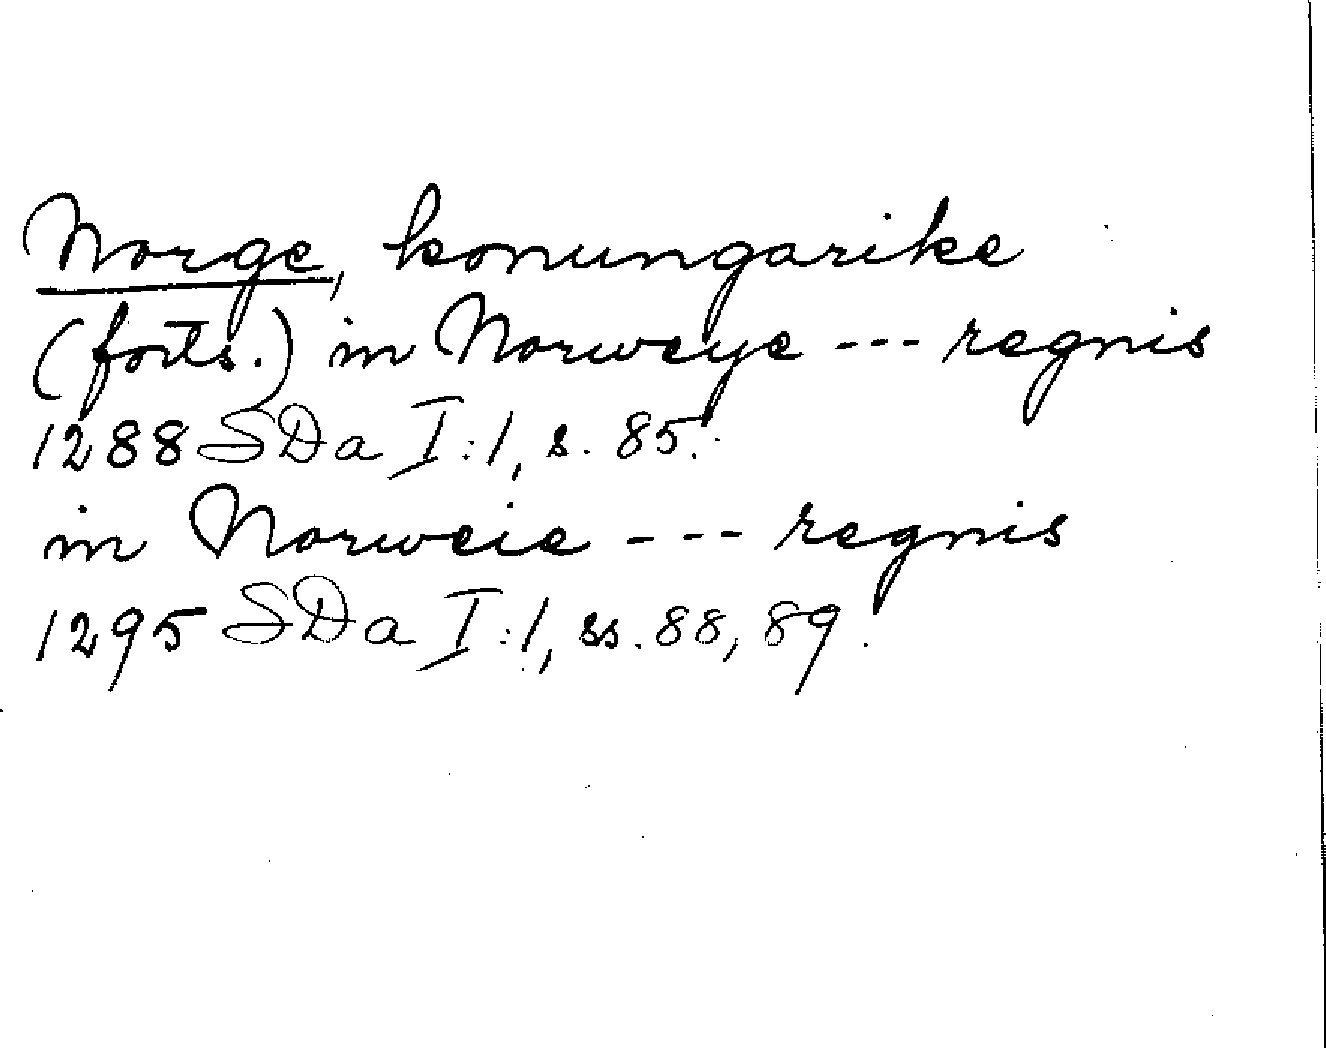 Norge, konungarike
(forts.) in Norweye --- regnis
1288 SDa I:1, s. 85.
in Norweie --- regnis
1295 SDa I:1, ss. 88, 89.